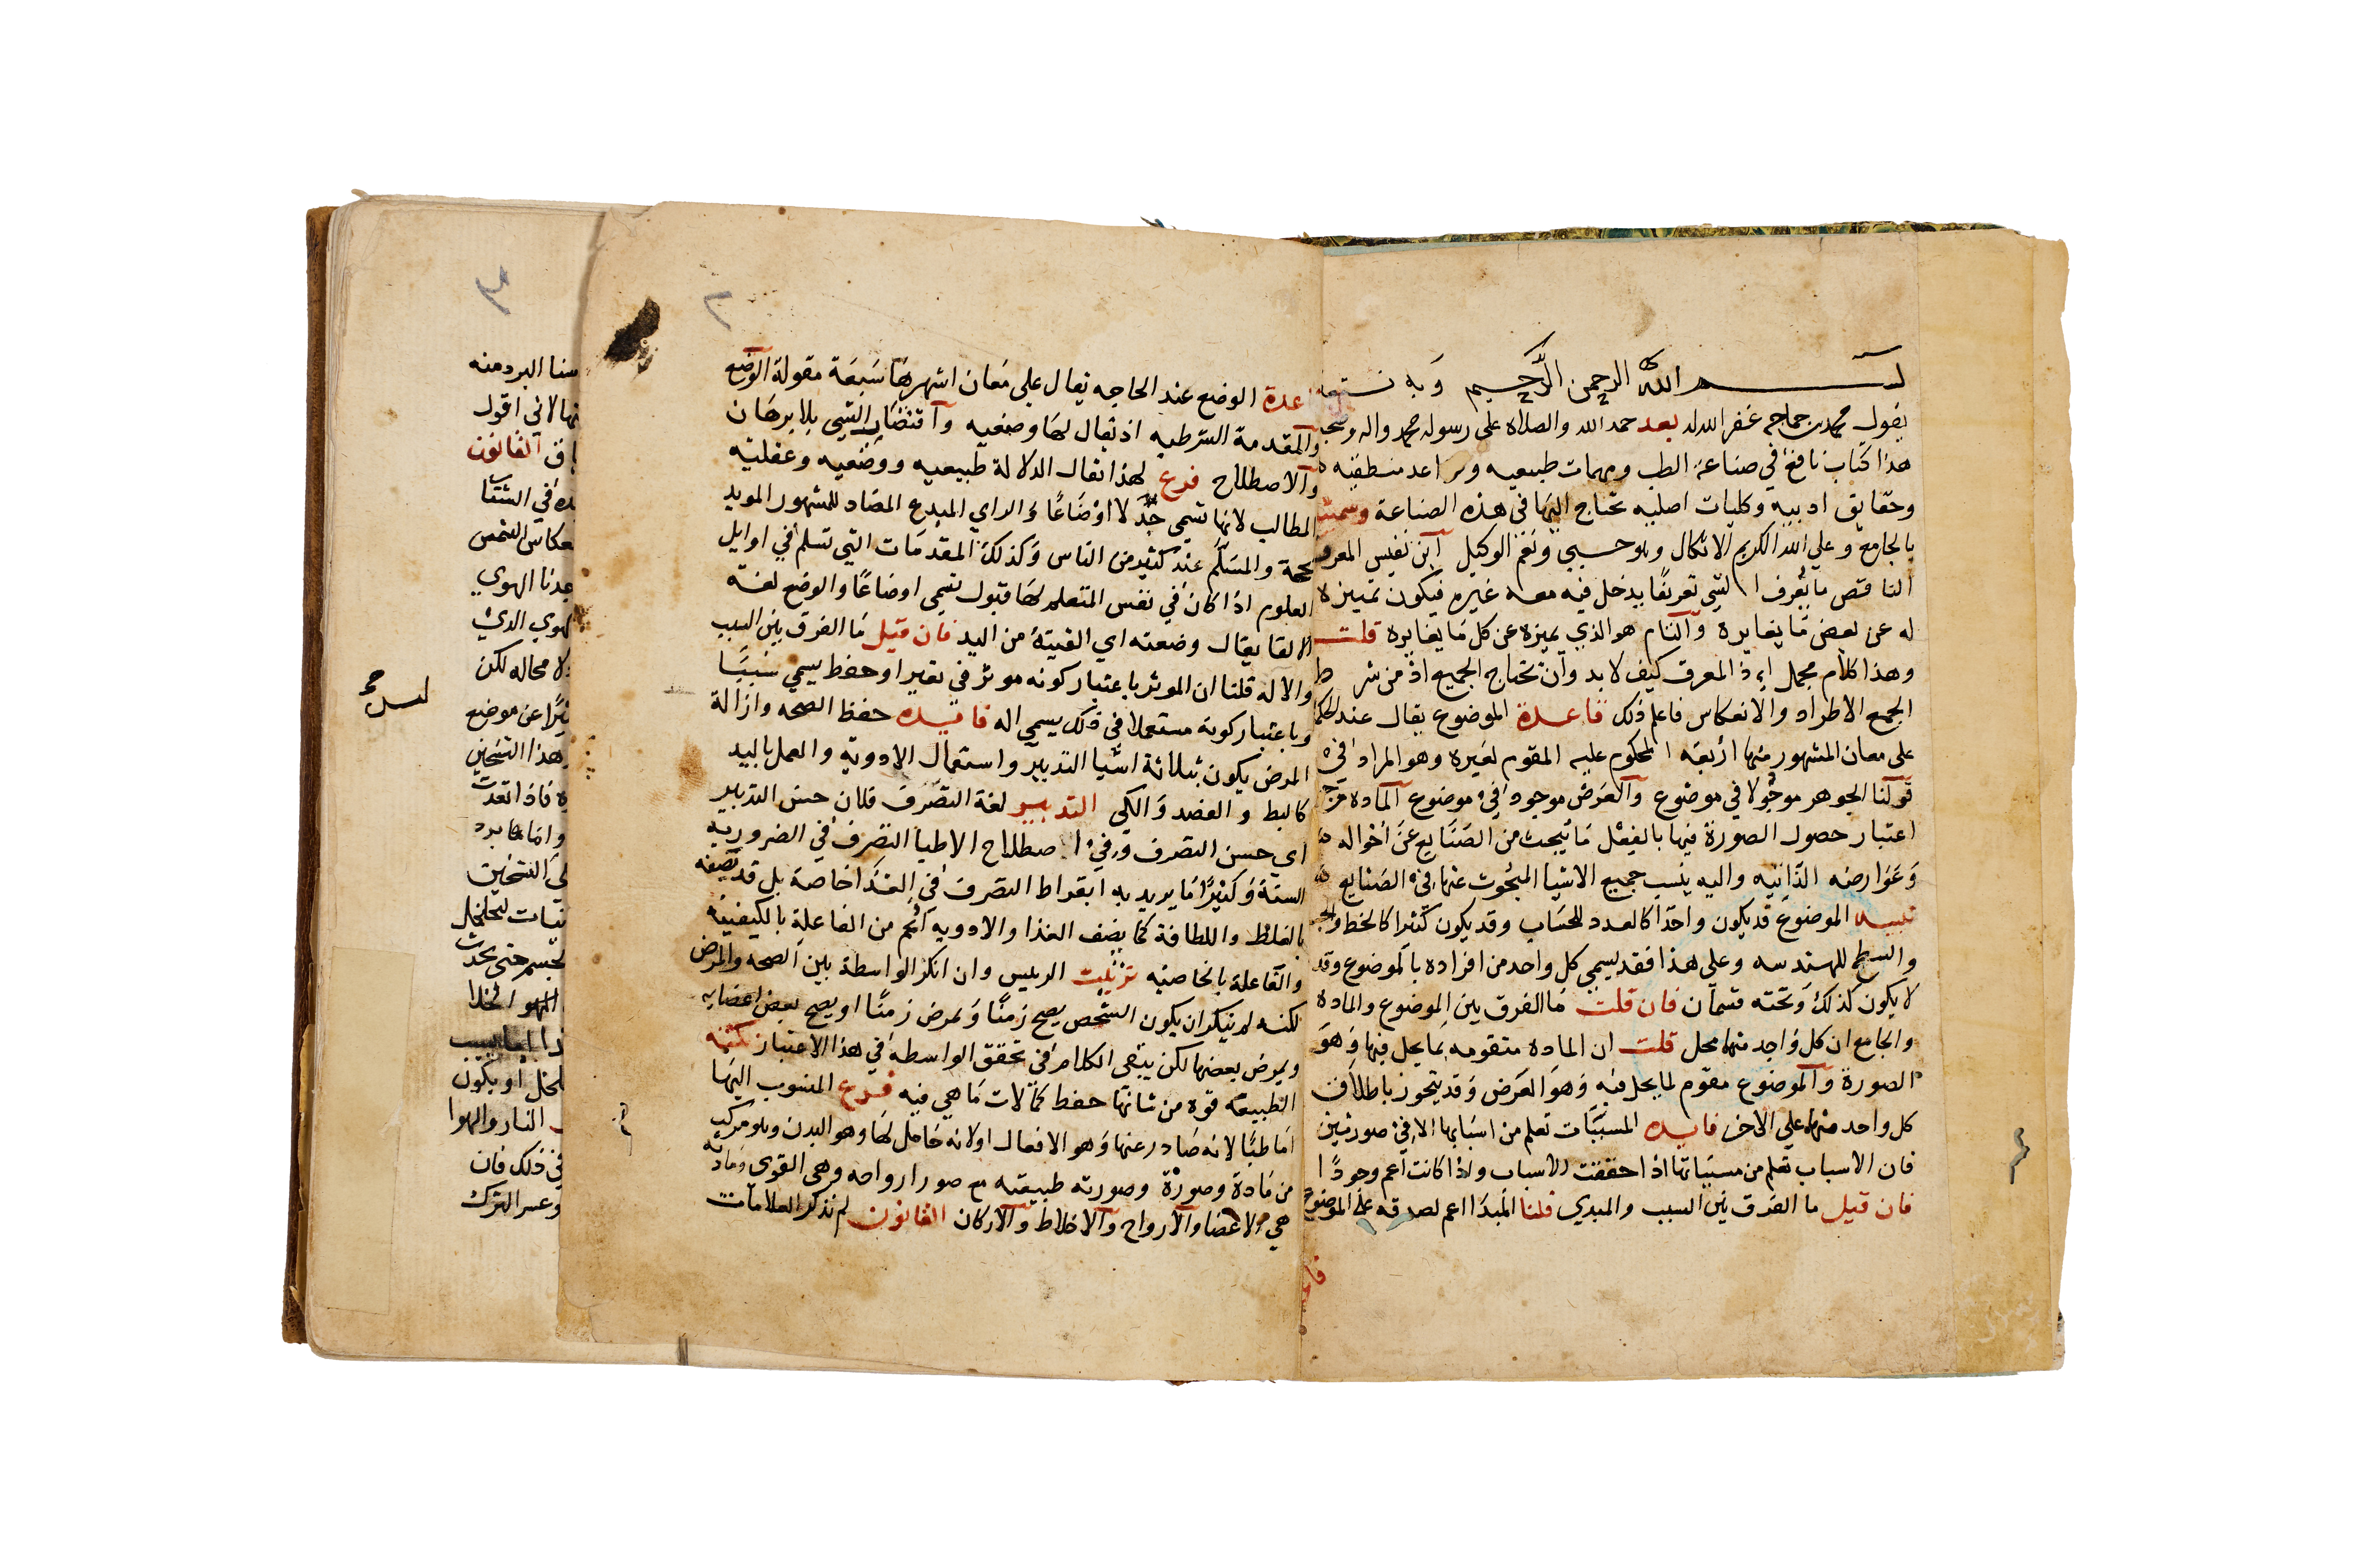 بسم الله الرحمن الرحيم وبه نستعين
يقول محمد بن جماجم غفر الله له بعد حمد الله والصلاة على رسوله محمد واله وصحبه
هذا كتاب نافع في صناعة الطب ومهمات طبيعيه وقواعد منطقيه
وحقايق ادبيه وكليات اصليه تحتاج اليها في هذه الصناعة وسميته
بالجامع وعلي الله الكريم الاتكال وهو حسبي ونعم الوكيل ابن نفيس المعرف
الناقص ما يعرف الشي تعريفا يدخل فيه معه غيره فيكون تمييزه
له عن بعض ما يغايره والتام هو الذي يميزه عن كل ما يغايره قلت
وهذا كلام مجمل اذ المعرف كيف لا بد وان تحتاج الجميع اذ من شرط
الجمع الاطراد والانعكاس فاعلم ذلك قاعدة الموضوع يقال عند الحكما
على معان المشهور منها اربعه المحكوم عليه المقوم لغيره وهو المراد في
قولنا الجوهر موجود لا في موضوع والعرض موجود في موضوع المادة
اعتبار حصول الصورة فيها بالفعل ما يبحث من الصنايع عن احواله
وعوارضه الذاتيه واليه ينسب جميع الاشيا المبحوث عنها في الصنايع
تنبيه الموضوع قد يكون واحدا كالعدد للحساب وقد يكون كثيرا كالخط والجسم
والسطح للهندسه وعلى هذا فقد يسمي كل واحد من افراده بالموضوع وقد
لا يكون كذلك وتحته قسمان فان قلت ما الفرق بين الموضوع والمادة
والجامع ان كل واحد منهما محل قلت ان المادة متقومه بما يحل فيها وهو
الصورة والموضوع مقوم لما يحل فيه وهو العرض وقد يتجوز باطلاق
كل واحد منهما علي الاخر فايده المسببات تعلم من اسبابها الا في صورتين
فان الاسباب تعلم من مسبباتها اذا حققت الاسباب واذا كانت اعم وجودا
فان قيل ما الفرق بين السبب والمبدي قلنا المبدا اعم لصدقه على الموضوع
قاعدة الوضع عند الحاجه يقال علي معان اشهرها سبعة مقولة الوضع
والمقدمة الشرطيه اذ يقال لها وضعيه واقتضاب الشي بلا برهان
والاصطلاح فرع لهذا يقال الدلالة طبيعيه ووضعيه وعقليه
المطالب لانها تسمي اوضاعا والراي المبدع المضاد للمشهور المويد
بحجة والمسلم عند كثير من الناس وكذلك المقدمات التي تسلم في اوايل
العلوم اذا كان في نفس المتعلم لها قبول تسمي اوضاعا والوضع لغة
الالقا يقال وضعته اي القيته من اليد فان قيل ما الفرق بين السبب
والاله قلنا ان الموثر باعتبار كونه موثر في تغير او حفظ يسمي سببا
وباعتبار كونه مستعملا في ذلك يسمي اله فايده حفظ الصحه وازالة
المرض يكون بثلاثة اشيا التدبير واستعمال الادويه والعمل باليد
كالبط والفصد والكي التدبير لغة التصرف فلان حسن التدبير
اي حسن التصرف وفي اصطلاح الاطبا التصرف في الضروريه
الستة وكثيرا ما يريد به ابقراط التصرف في الغذا خاصة بل قد تصفه
بالغلظ واللطافة كما يصف الغذا والادويه اعم من الفاعلة بالكيفيه
والفاعلة بالخاصيه الرييس وان انكر الواسطة بين الصحه والمرض
لكنه لم ينكر ان يكون الشخص يصح زمنا ويمرض زمنا او يصح بعض اعضايه
ويمرض بعضها لكن يبقى الكلام في تحقق الواسطة في هذا الاعتبار
الطبيعه قوه من شانها حفظ كمالات ما هي فيه فرع المنسوب اليها
اما طبا لانه صادر عنها وهو الافعال اولا نه حامل لها وهو البدن وهو مركب
من مادة وصورة وصورته طبيعته مع صور ارواحه وهي القوى ومادته
هي الاعضا والارواح والاخلاط والاركان القانون لم نذكر العلامات
٢
سنا البرد منه
نها لاني اقول
القانون
ده في الشتا
عكاس الشمس
الهوي
لهوي الذي
لا محاله لكن
عن موضع
هذا التسخين
فاذا تعدت
واما ما برد
التسخين
حتى يحدث
الهوا
او يكون
النار والهوا
في ذلك فان
وعسر الترك